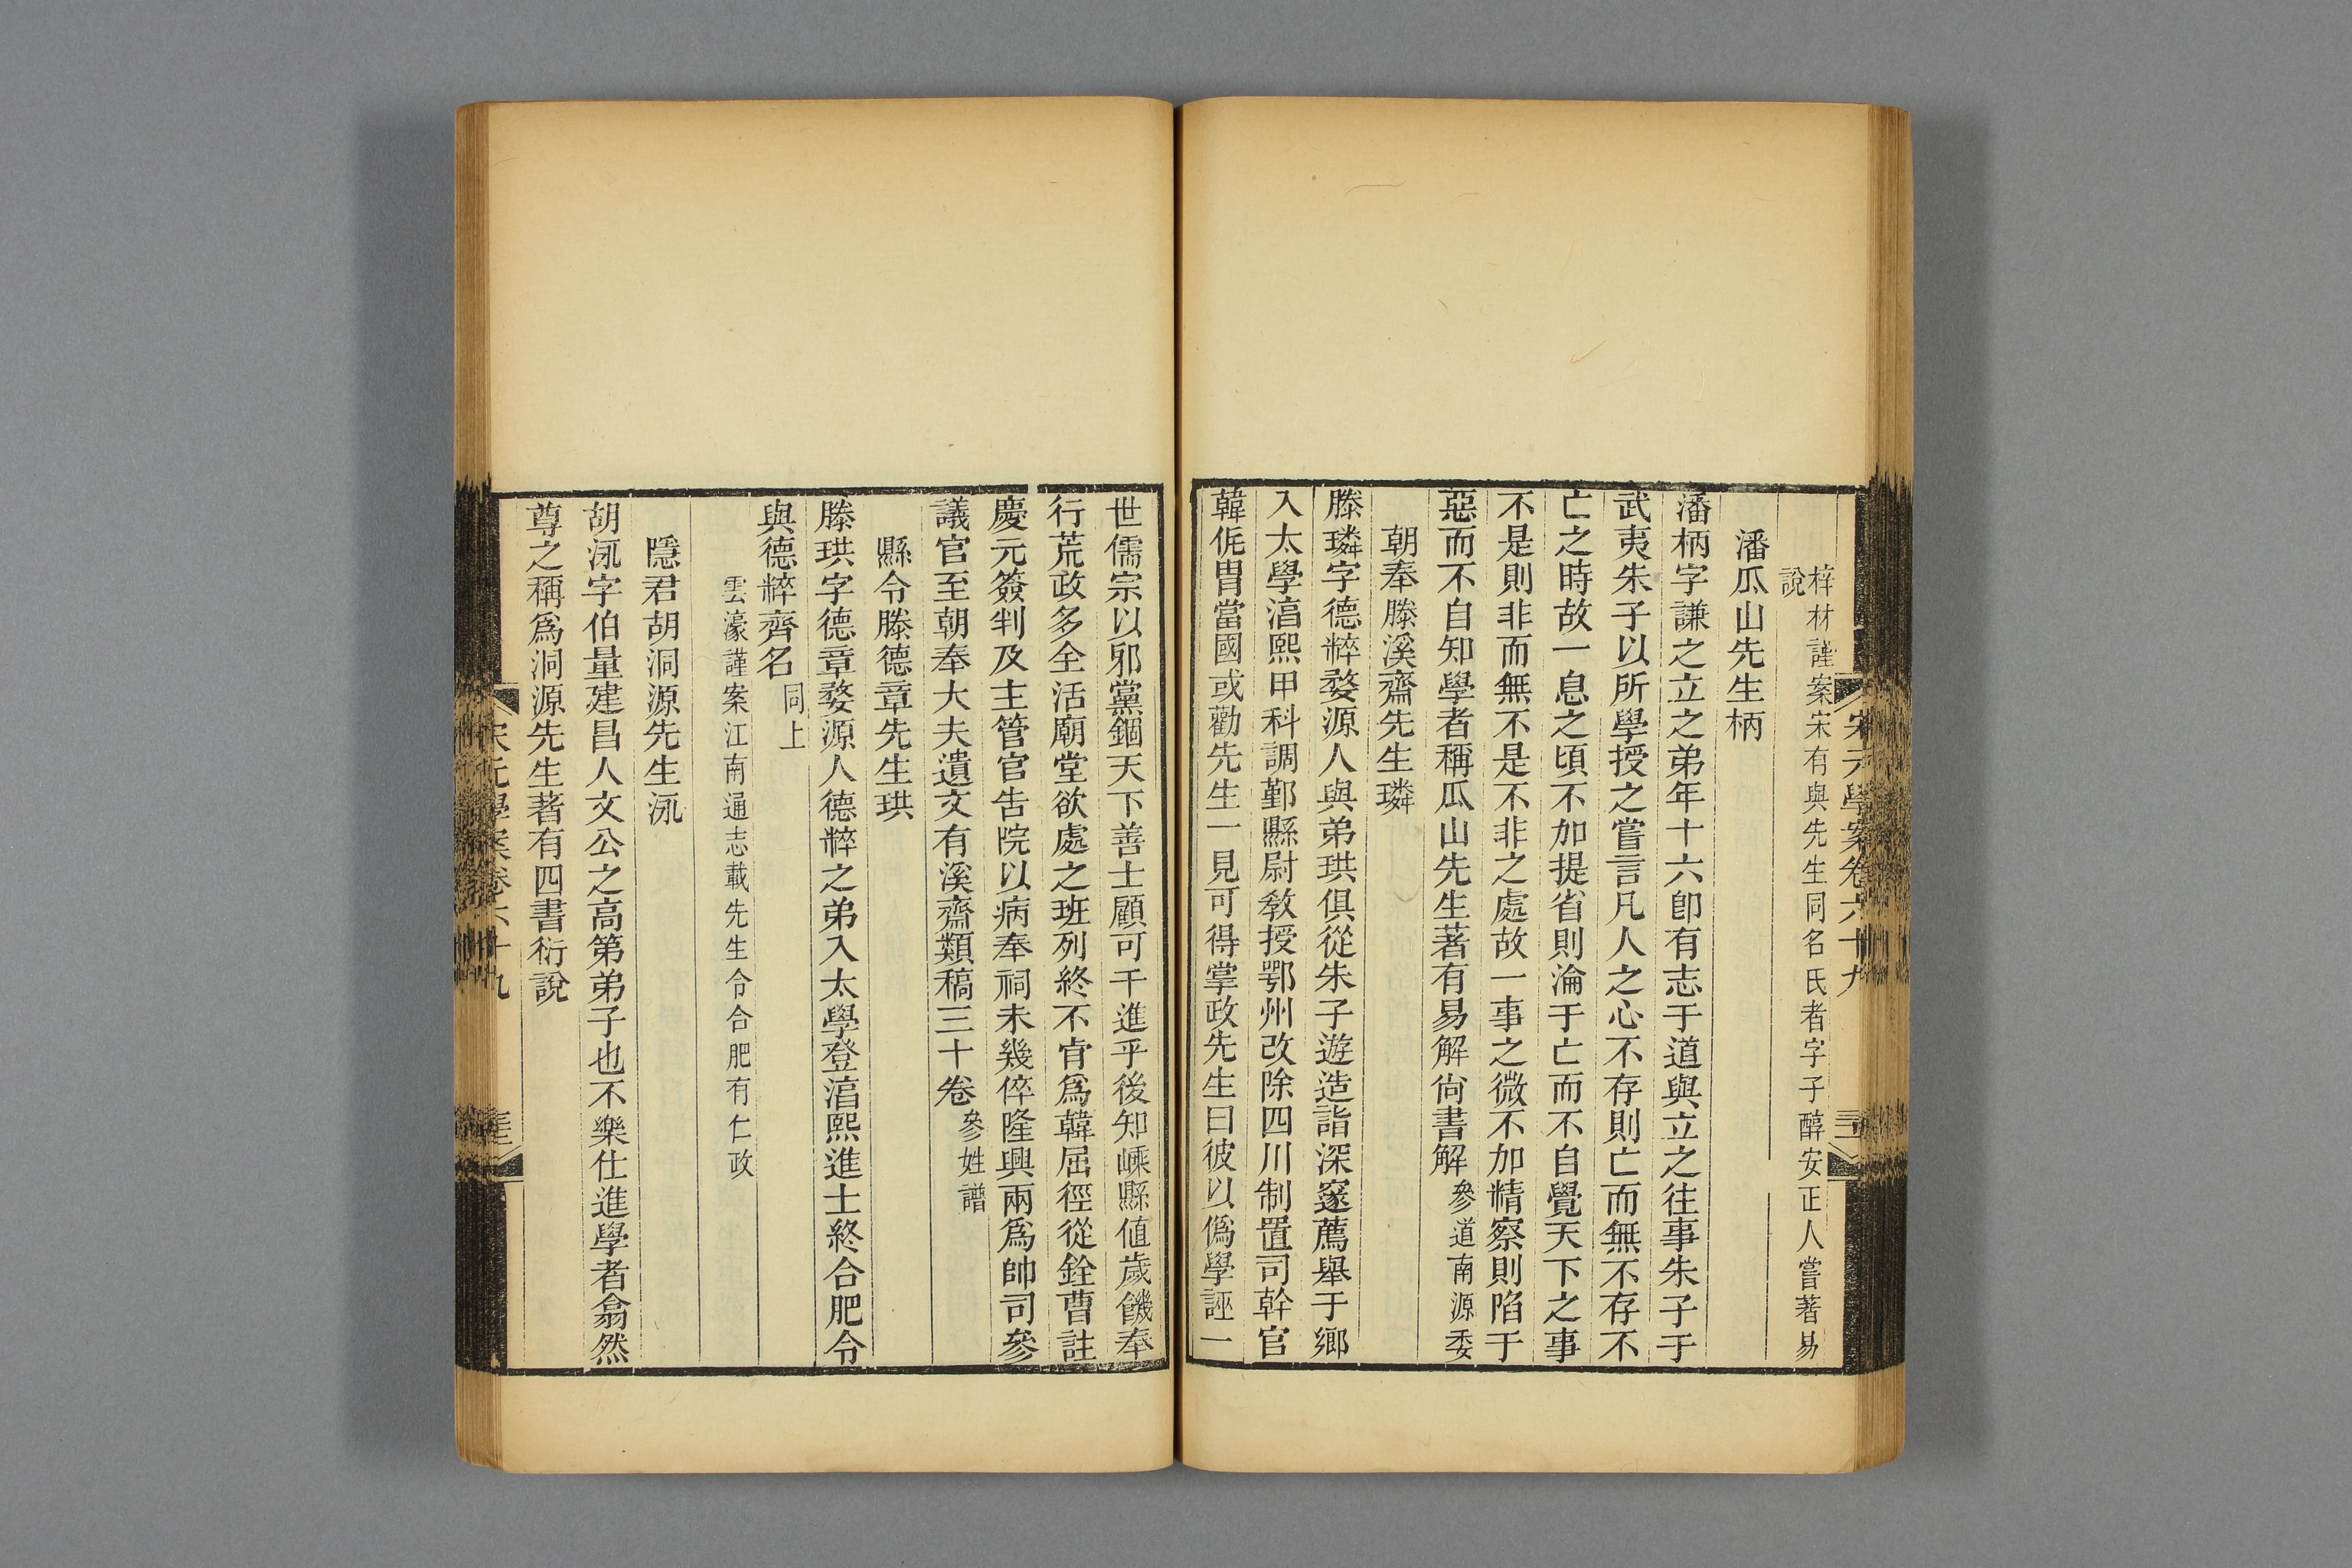 宋元學案卷六十九
梓材謹案宋有與先生同名氏者字子醇安正人嘗著易
說
潘瓜山先生柄
潘柄字謙之立之弟年十六卽有志于道與立之往事朱子于
武夷朱子以所學授之嘗言凡人之心不存則亡而無不存不
亡之時故一息之頃不加提省則淪于亡而不自覺天下之事
不是則非而無不是不非之處故一事之微不加精察則陷于
惡而不自知學者稱瓜山先生著有易解尙書解參道南源委
朝奉滕溪齋先生璘
滕璘字德粹婺源人與弟珙俱從朱子遊造詣深邃薦舉于鄉
入太學淳熙甲科調鄞縣尉敎授鄂州改除四川制置司幹官
韓侂胄當國或勸先生一見可得掌政先生曰彼以僞學誣一
世儒宗以邪黨錮天下善士顧可干進乎後知嵊縣值歲饑奉
行荒政多全活廟堂欲處之班列終不肯爲韓屈徑從銓曹註
慶元簽判及主管官告院以病奉祠未幾倅隆興兩爲帥司參
議官至朝奉大夫遺文有溪齋類稿三十卷參姓譜
縣令滕德章先生珙
滕珙字德章婺源人德粹之弟入太學登淳熙進士終合肥令
與德粹齊名同上
雲濠謹案江南通志載先生令合肥有仁政
隱君胡洞源先生泳
胡泳字伯量建昌人文公之高第弟子也不樂仕進學者翕然
尊之稱爲洞源先生著有四書衍說
宋元學案卷六十九